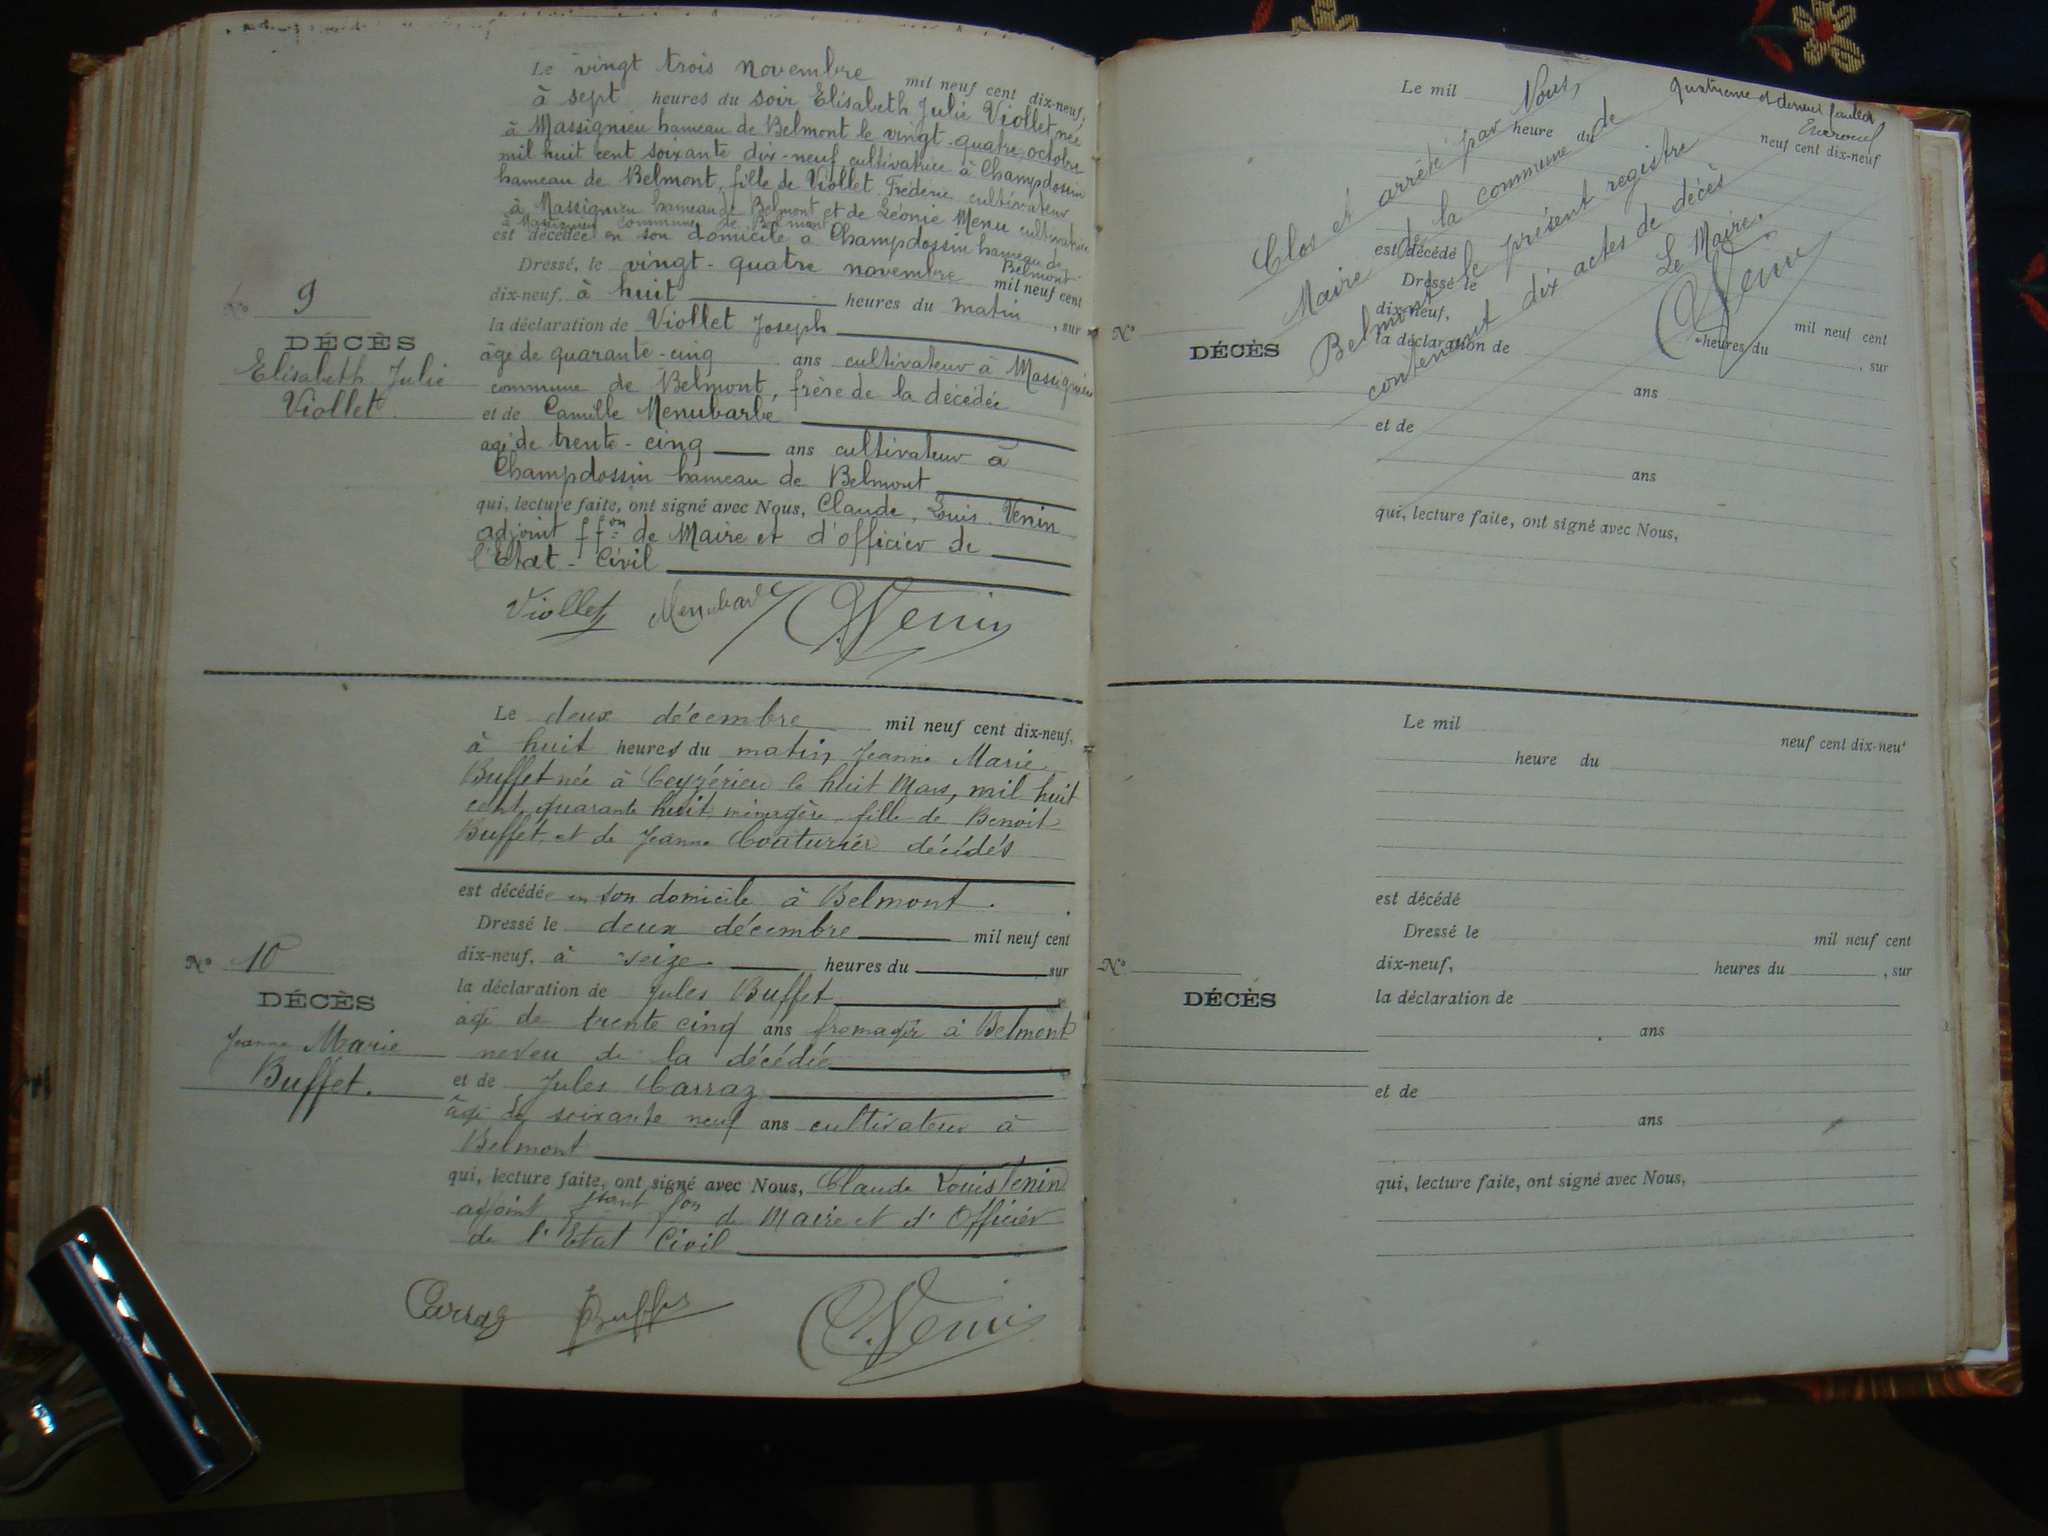 Le vingt trois novembre mil neuf cent dix-neuf,
à sept heures du soir Elisabeth Julie Viollet née
à Massignieu hameau de Belmont le vingt-quatre octobre
mil huit cent soixante dix-neuf cultivatrice à Champdossin
hameau de Belmont, fille de Viollet Fréderic cultivateur
à Massignieu hameau de Belmont et de Léonie Menu cultivatrice
à Massignieu commune de Belmont
est décédée en son domicile à Champdossin hameau de
Belmont
Dressé, le vingt-quatre novembre mil neuf cent
dix-neuf, à huit heures du matin, sur
la déclaration de Viollet Joseph
âgé de quarante-cinq ans cultivateur à Massignieu
commune de Belmont, frère de la décédée
et de Camille Menubarbe
agé de trente-cinq ans cultivateur à
Champdossin hameau de Belmont
qui, lecture faite, ont signé avec Nous, Claude, Louis Venin
adjoint f f.on de Maire et d'officier de
l'Etat-Civil
Viollet Menubarbe Venin
No 9
DÉCÈS
Elisabeth Julie
Viollet
Le deux décembre mil neuf cent dix-neuf,
à huit heures du matin, Jeanne Marie
Buffet née à Ceyzérieu le huit Mars, mil huit
cent quarante huit ménagère fille de Benoit
Buffet et de Jeanne Couturier décédés
est décédée en son domicile à Belmont.
Dressé le deux décembre mil neuf cent
dix-neuf, à seize heures du sur
la déclaration de Jules Buffet
âgé de trente cinq ans fromager à Belmont
neveu de la décédée
et de Jules Carraz
âgé de soixante neuf ans cultivateur à
Belmont
qui, lecture faite, ont signé avec Nous, Claude Louis Venin
adjoint fsant fon de Maire et d'Officier
de l'Etat Civil
Carraz Buffet C. Venin
No 10
DÉCÈS
Jeanne Marie
Buffet.
quatrième et dernier feuillet
Le mil neuf cent dix-neuf
heure du
est décédé
Dressé le mil neuf cent
dix-neuf, heures du , sur
la déclaration de
ans
et de
ans
qui, lecture faite, ont signé avec Nous,
No
DÉCÈS
Clos et arrêté par Nous,
Maire de la commune de
Belmont le présent registre
contenant dix actes de décès
Le Maire.
Venin
Le mil neuf cent dix-neuf
heure du
est décédé
Dressé le mil neuf cent
dix-neuf, heures du , sur
la déclaration de
ans
et de
ans
qui, lecture faite, ont signé avec Nous,
No
DÉCÈS